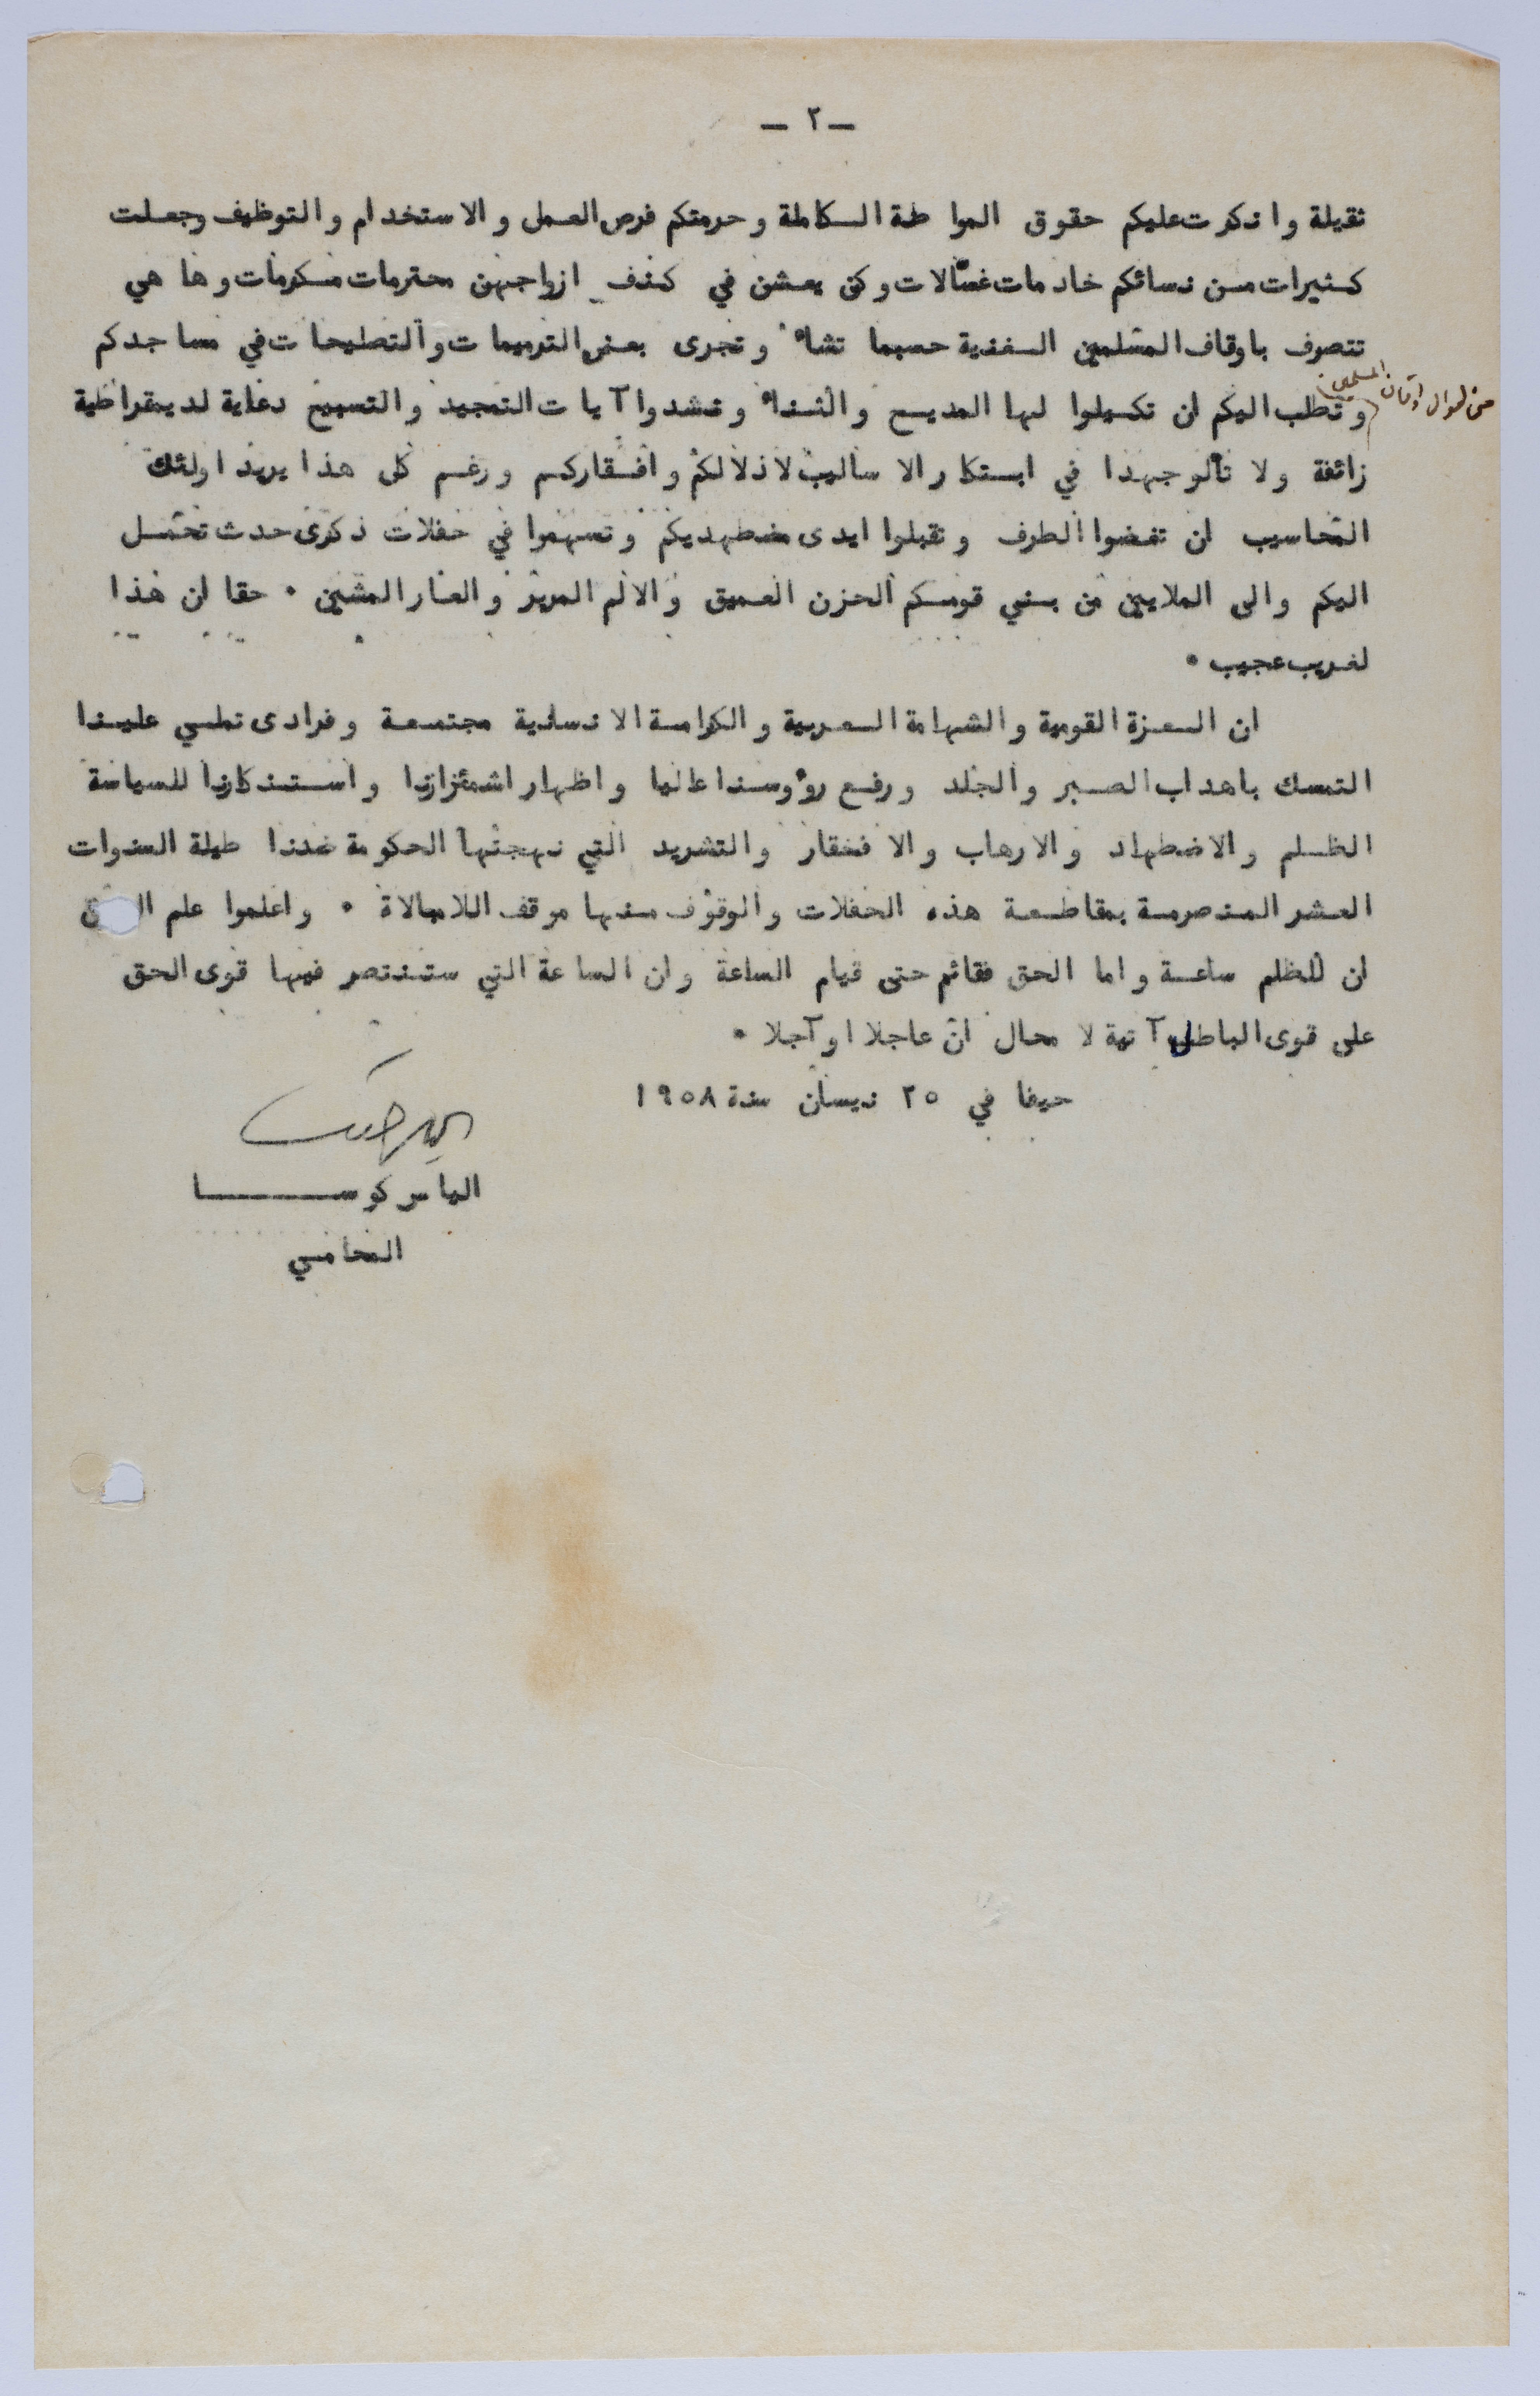 — ٢ —
ثقيلة وانكرت عليكم حقوق المواطنة الكاملة وحرمتكم فرص العمل والاستخدام والتوظيف وجعلت
كثيرات من نسائكم خادمات غسّالات وكن يعشن في كنف ازواجهن محترمات مكرمات وها هي
تتصرف باوقاف المسلمين الغنية حسبما تشاء وتجرى بعض الترميمات والتصليحات في مساجدكم
من اموال اوقاف المسلمين
وتطلب اليكم ان تكيلوا لها المديح والثناء وتنشدوا آيات التمجيد والتسبيح دعاية لديمقراطية
زائفة ولا تألو جهدا في ابتكار الاساليب لاذلالكم وافقاركم ورغم كل هذا يريد اولئك
المحاسيب ان تغضوا الطرف وتقبلوا ايدى مضطهديكم وتسهموا في حفلات ذكرى حدث تحمل
اليكم والى الملايين من بني قومكم الحزن العميق والالم المرير والعار المشين ٠ حقا ان هذا
لغريب عجيب ٠
ان العزة القومية والشهامة العربية والكرامة الانسانية مجتمعة وفرادى تملي علينا
التمسك باهداب الصبر والجلد ورفع رؤوسنا عاليا واظهار اشمئزازنا واستنكارنا للسياسة
الظلم والاضطهاد والارهاب والافقار والتشريد التي نهجتها الحكومة ضدنا طيلة السنوات
العشر المنصرمة بمقاطعة هذه الحفلات والوقوف منها موقف اللامبالاة ٠ واعلموا علم
ان للظلم ساعة واما الحق فقائم حتى قيام الساعة وان الساعة التي ستنتصر فيها قوى الحق
على قوى الباطل آتية لا محال ان عاجلا او آجلا ٠
حيفا في ٢٥ نيسان سنة ١٩٥٨
الياس كوسا
المحامي